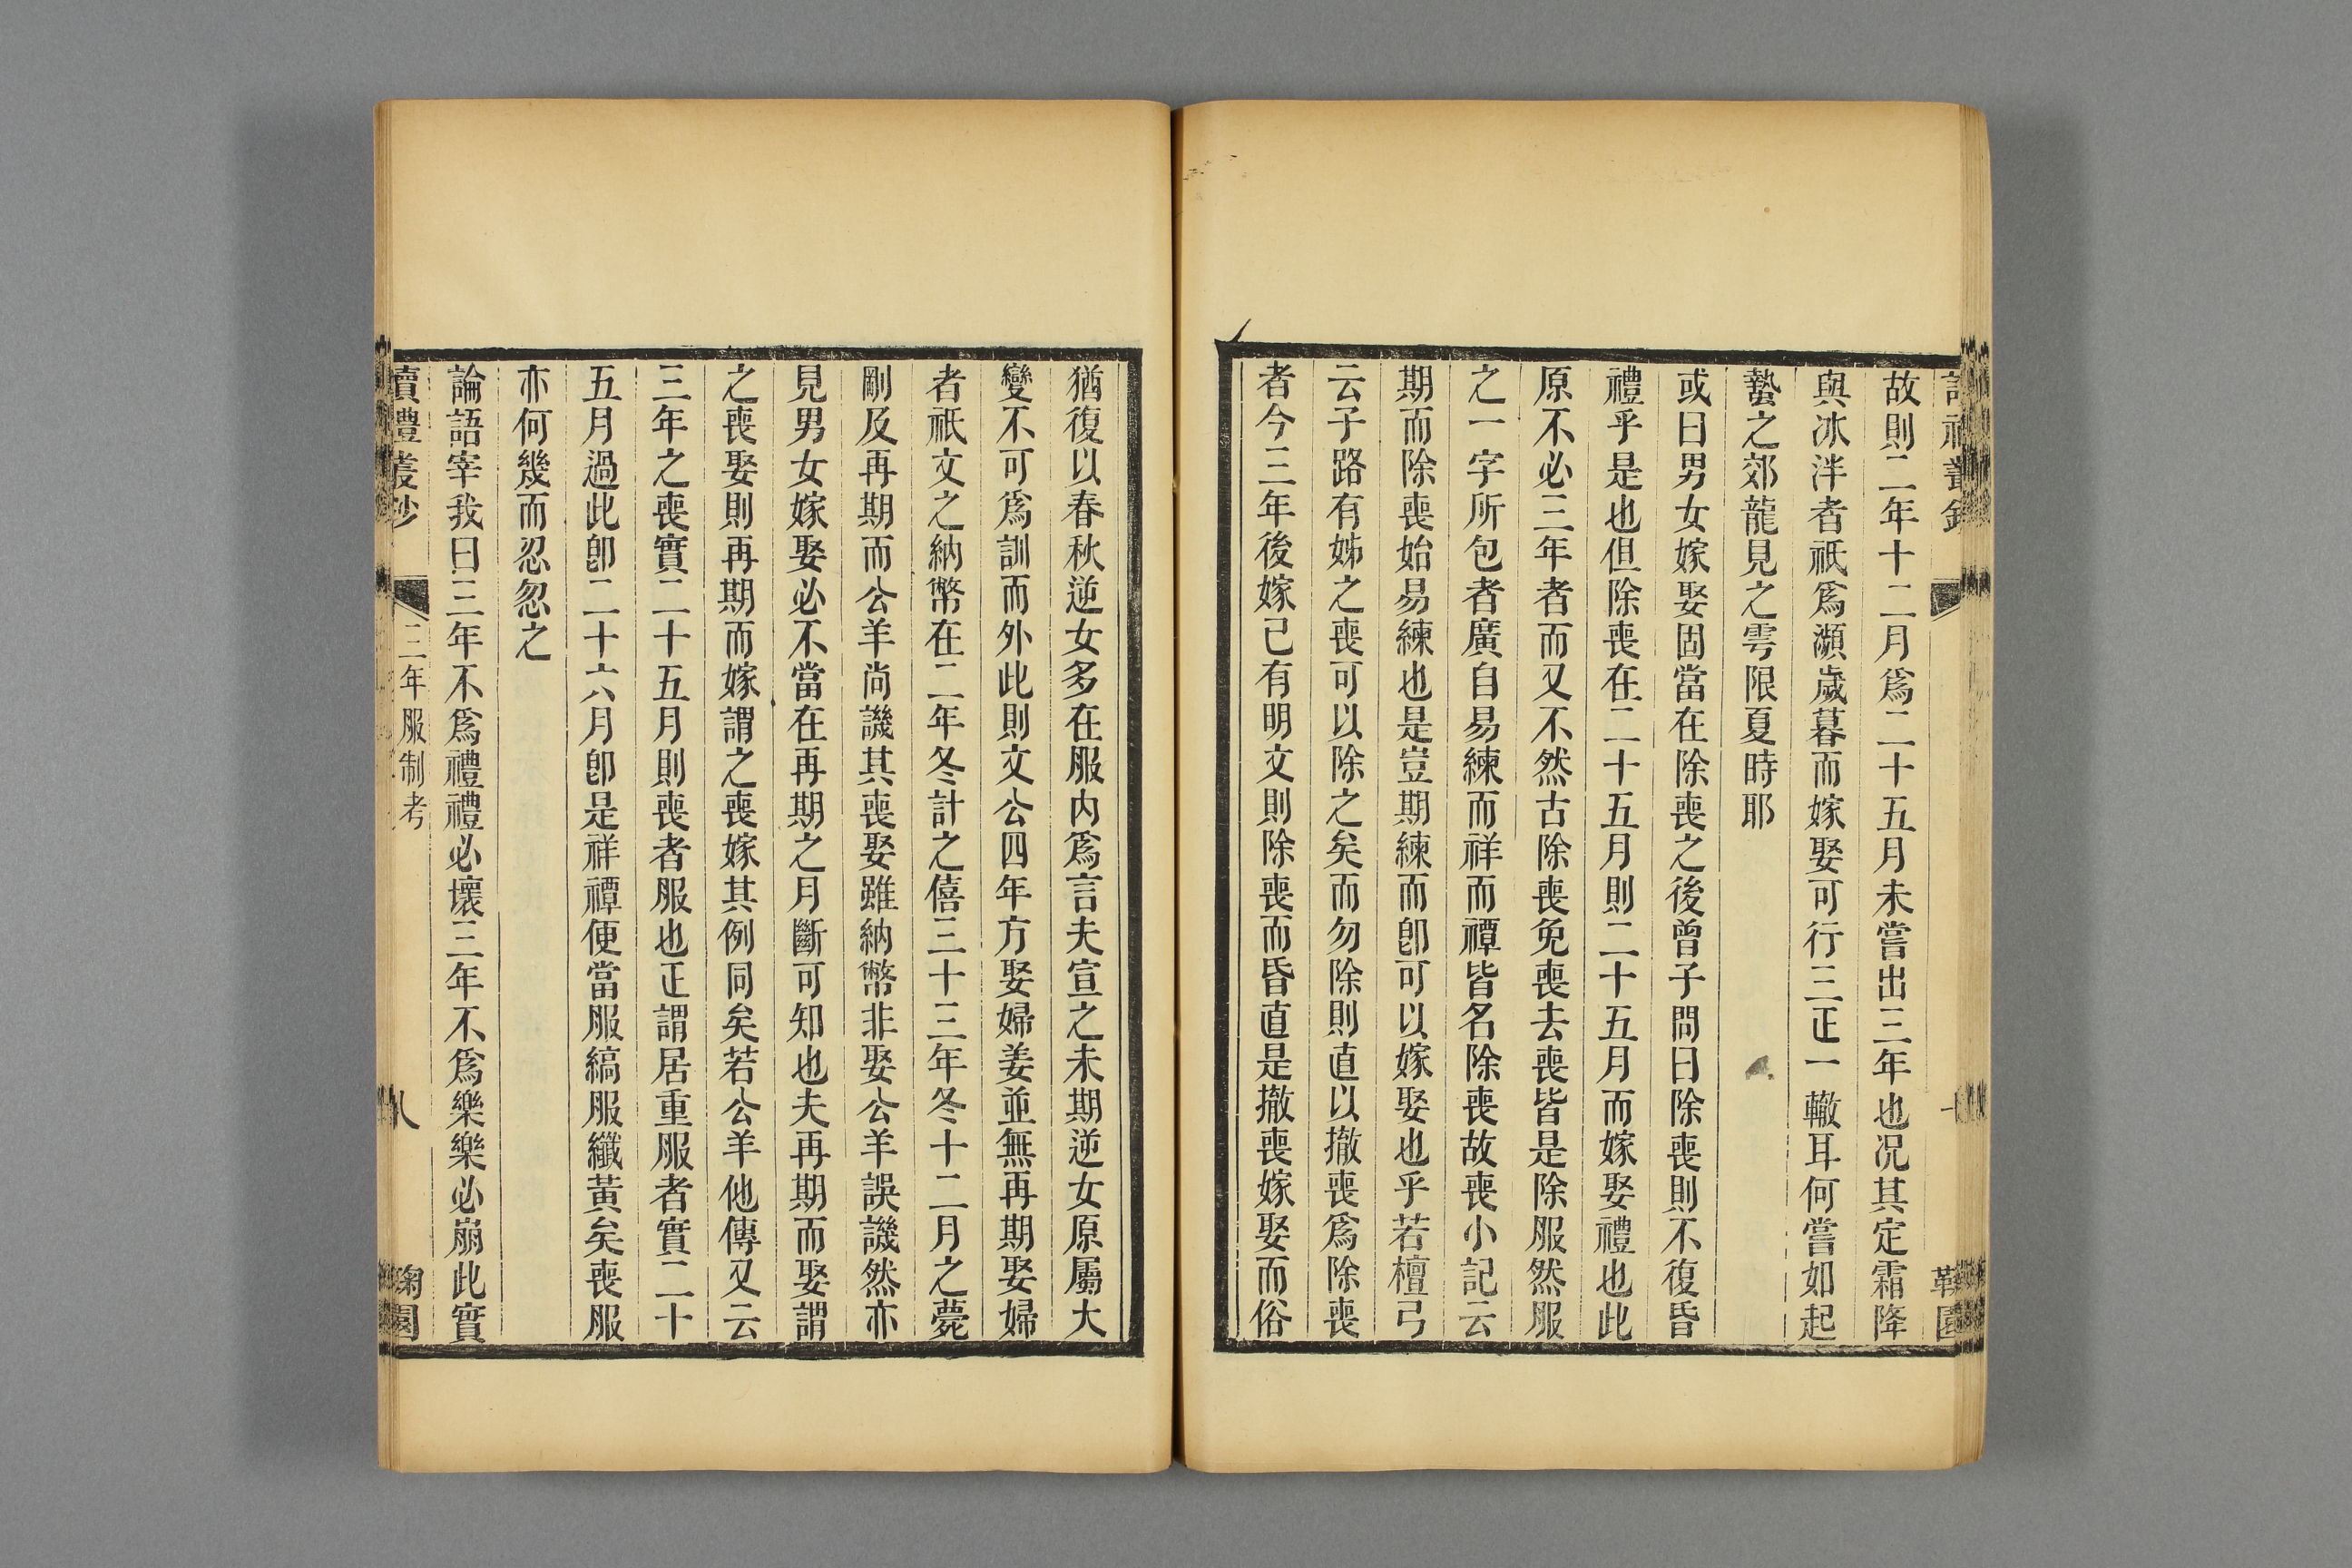 故則二年十二月爲二十五月未嘗出三年也况其定霜降
與冰泮者祇爲瀕歲暮而嫁娶可行三正一轍耳何嘗如起
蟄之郊龍見之雩限夏時耶
或曰男女嫁娶固當在除喪之後曾子問曰除喪則不復昏
禮乎是也但除喪在二十五月則二十五月而嫁娶禮也此
原不必三年者而又不然古除喪免喪去喪皆是除服然服
之一字所包者廣自易練而祥而禫皆名除喪故喪小記云
期而除喪始易練也是豈期練而卽可以嫁娶也乎若檀弓
云子路有姊之喪可以除之矣而勿除則直以撤喪爲除喪
者今三年後嫁已有明文則除喪而昏直是撤喪嫁娶而俗
猶復以春秋逆女多在服内爲言夫宣之未期逆女原屬大
變不可爲訓而外此則文公四年方娶婦姜並無再期娶婦
者祇文之納幣在二年冬計之僖三十三年冬十二月之薨
剛及再期而公羊尚譏其喪娶雖納幣非娶公羊誤譏然亦
見男女嫁娶必不當在再期之月斷可知也夫再期而娶謂
之喪娶則再期而嫁謂之喪嫁其例同矣若公羊他傳又云
三年之喪實二十五月則喪者服也正謂居重服者實二十
五月過此卽二十六月卽是祥禫便當服縞服纖黃矣喪服
亦何幾而忍忽之
論語宰我曰三年不爲禮禮必壞三年不爲樂樂必崩此實
讀禮叢鈔
三年服制考
八
鞠園